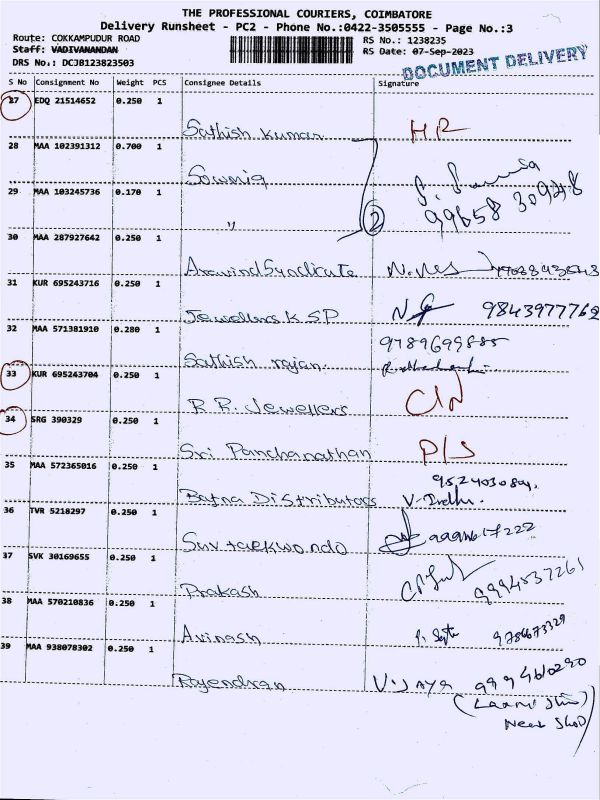 THE PROFESSIONAL COURIERS, COIMBATORE
Delivery Runsheet - PC2 - Phone No.:0422-3505555 - Page No.:3
Route: COKKAMPUDUR ROAD RS No.: 1238235
Staff: VADIVANANDAN RS Date: 07-Sep-2023
DRS No.: DCJB123823503 DOCUMENT DELIVERY
S No Consignment No Weight PCS Consignee Details Signature
27 EDQ 21514652 0.250 1
Sathish kumar HR
28 MAA 102391312 0.700 1
Sowmia
29 MAA 103245736 0.170 1
" 2 99658 30948
30 MAA 287927642 0.250 1
Aravind Syndicate
31 KUR 695243716 0.250 1
Jewellers K SP 9843977762
32 MAA 571381910 0.280 1 9789699885
Sathish rajan
33 KUR 695243704 0.250 1
R R. Jewellers C/N
34 SRG 390329 0.250 1
Sri Panchanathan P/S
35 MAA 572365016 0.250 1
Ratna Distributors
36 TVR 5218297 0.250 1
Snv taekwondo
37 SVK 30169655 0.250 1
Prakash 9994537261
38 MAA 570210836 0.250 1
Avinash
39 MAA 938078302 0.250 1
Rajendran Vijaya
Near Shop